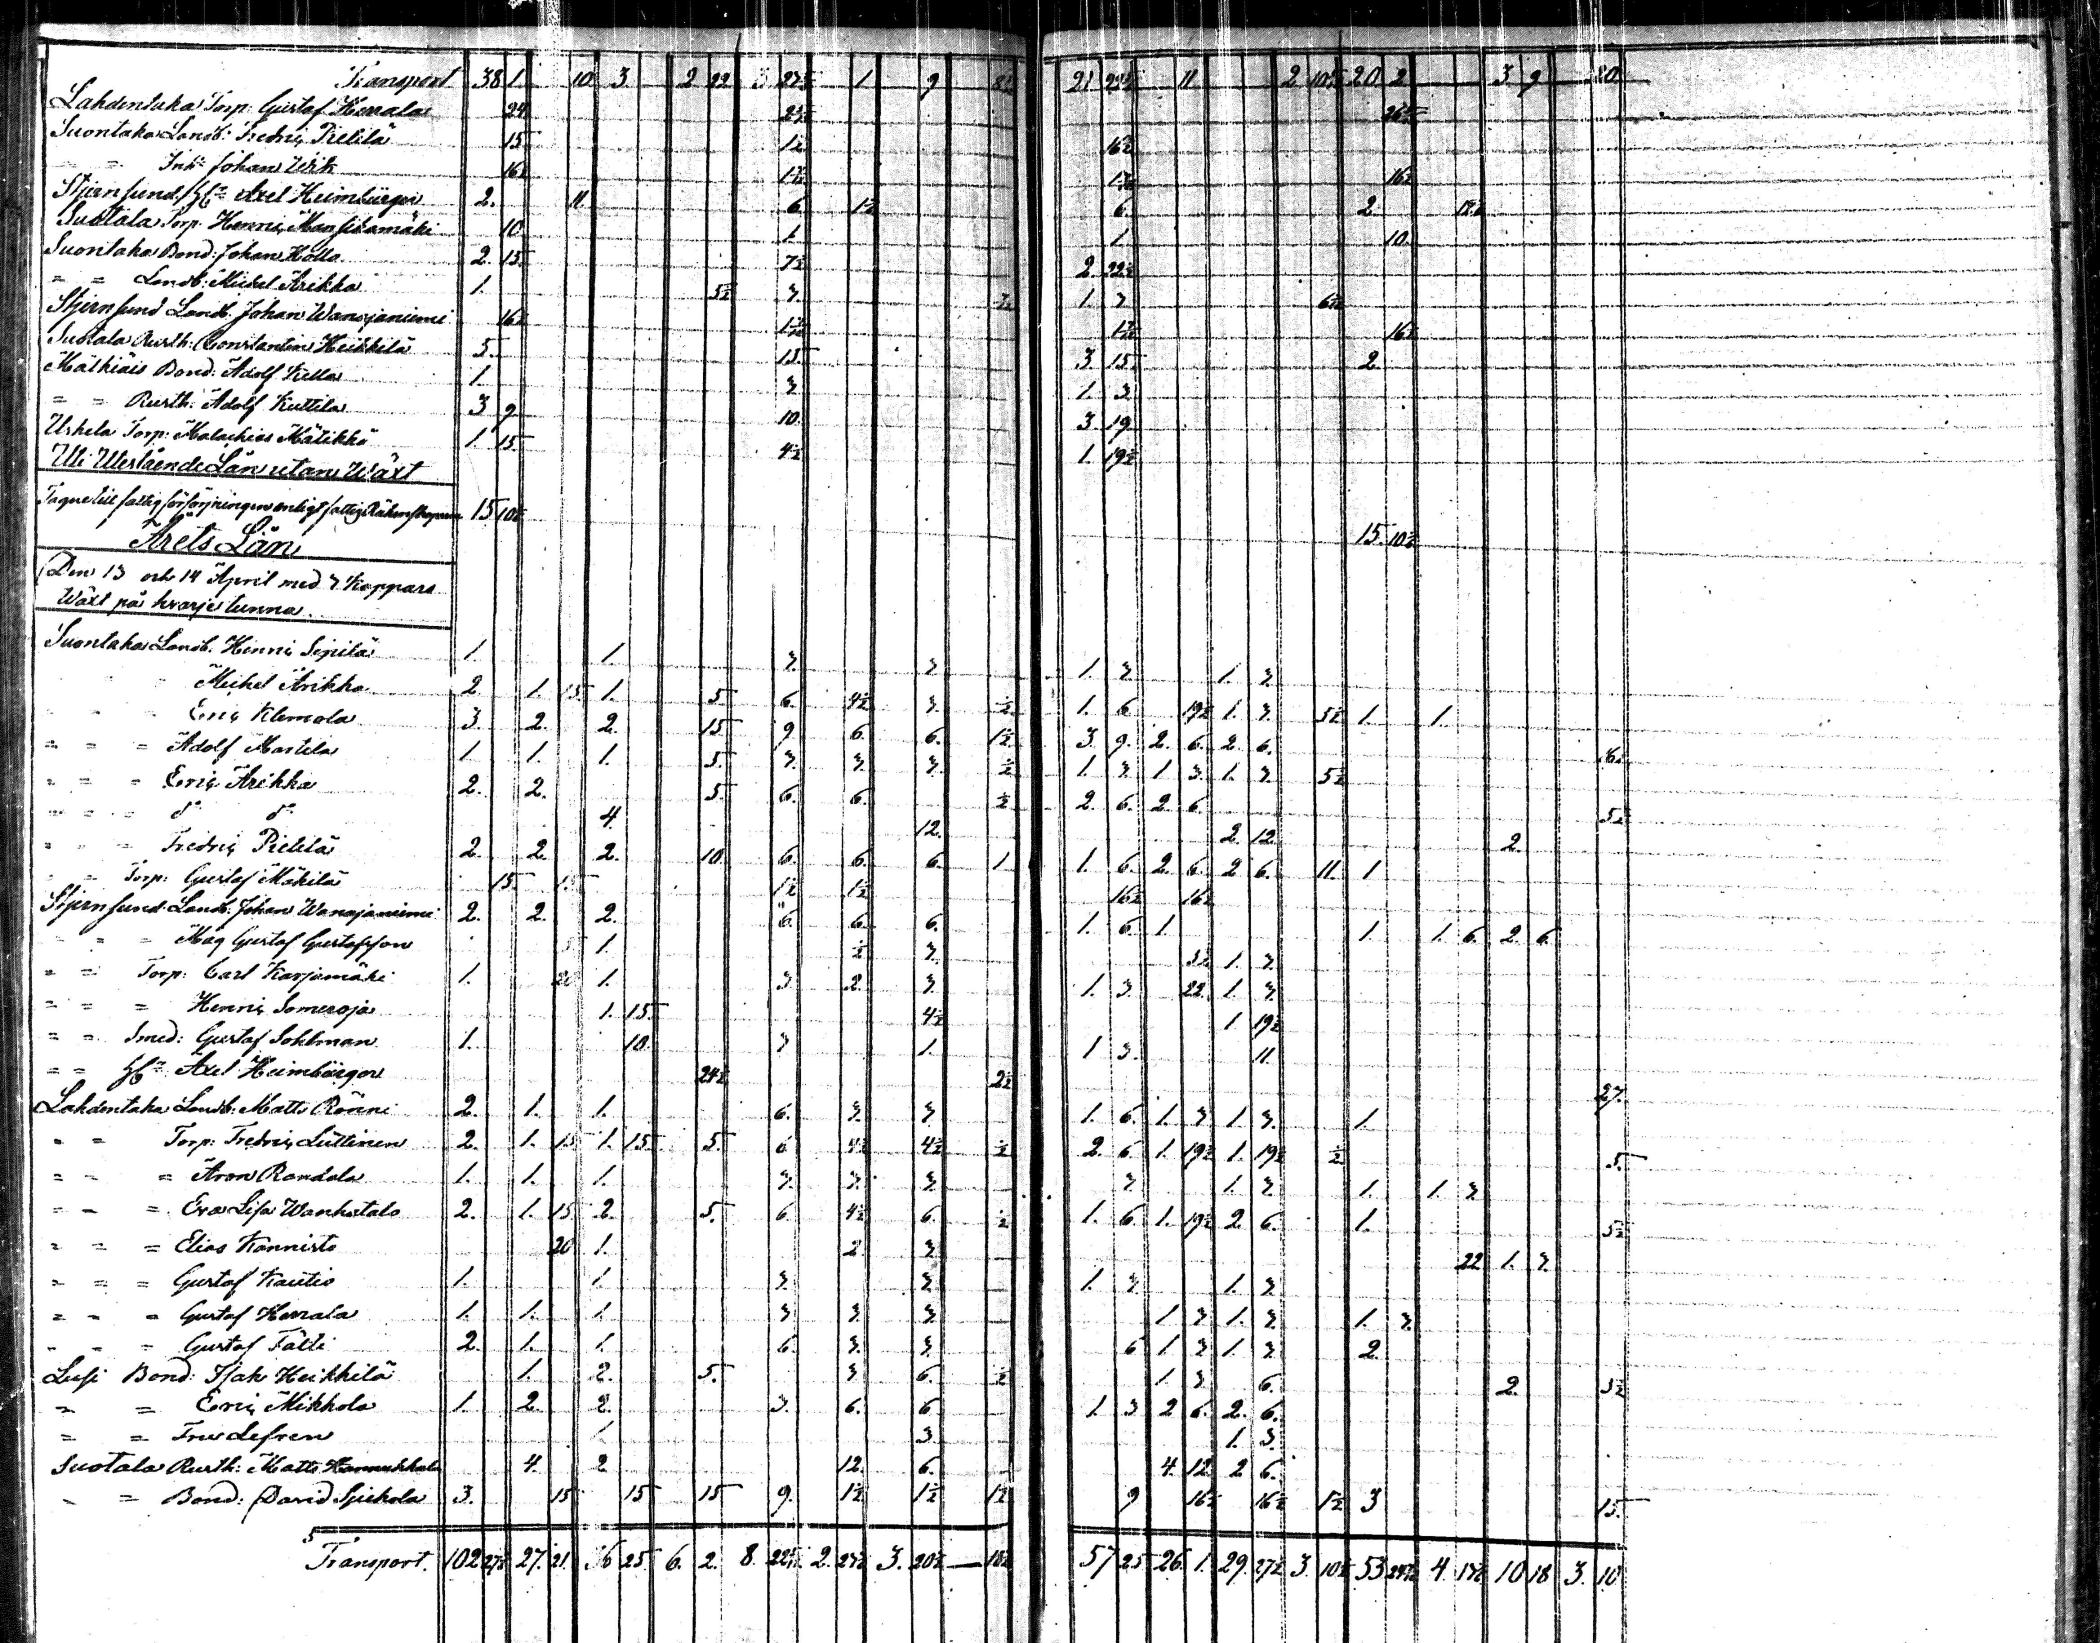 Transport 38 1. 10 3. 2 22 3 27½ 1 9 8½ 21 22½ 11 2 10½ 20 2 3 9 20
Lahdentaka Torp: Gustaf Herrala 24 2½ 26½
Suontaka Landb: Fredric Pietilä 15 1½ 16½
" = Inh: Johan Wik 16½ 1½ 16½
Stjernsund Axel Heimbürger 2. 11 6. 1½ 6. 2 12½
Suotala Torp. Henric Mansikamäki 10 1 1 10
Suontaka Bond: Johan Kollo 2. 15. 7½ 2. 22½
" = Landb: Michel Arikka 1. 5½ 3. ½ 1. 3 6½
Stjernsund Landb. Johan Wanajaniemi 16½ 16½
Suotala Rusth: Constantin Heikkilä 5. 15. 3 15. 2
Mälkiäis Bond: Adolf Kella 1. 3 1. 3.
" = Rusth: Adolf Kuttila 3 9 10. 3. 19
Urhela Torp: Malachias Mätikkö 1. 15 4½ 1. 19½
Uti Utestående Lån utan Wäxt
Tagne till fattigförsörjningen enligt fattig Räkenskapen 15 10½ 15. 10½
Årets Lån
Den 13 och 14 April med 3 Kappars
Wäxt på hvarje tunna.
Suontaka Landb. Henric Sipilä 1. 1. 3. 3 1. 3. 1. 3.
" " Michel Arikka 2. 1. 15 1. 5 6. 4½ 3. ½ 1. 6. 19½ 1. 3. 5½ 1. 1.
" " " Eric Klemola 3. 2. 2. 15 9 6. 6. 1½ 3. 9. 2. 6. 2. 6. 16½
" = = Adolf Martila 1. 1. 1. 5. 3. 3. 3. ½ 1. 3. 1 3. 1. 3. 5½
" = = Eric Arikka 2. 2. 5. 6. 6. ½ 2. 6. 2 6 5½
" = = d:o d:o 4. 12. 2. 12. 2.
" " = Fredric Pietilä 2. 2. 2. 10. 6. 6. 6. 1 1. 6. 2. 6. 2 6. 11. 1
" = Torp: Gustaf Mäkilä 15 15 1½ 1½ 16½ 16½
Stjernsund Landb. Johan Wanajaniemi 2. 2. 2. 6. 6. 6. 1. 6. 1 1. 1. 6. 2. 6.
" = = Mag Gustaf Gustafsson 5 1. ½ 3. 5½ 1. 3.
" = Torp: Carl Karjamäki 1. 20 1. 3 2. 3 1. 3. 22. 1. 3.
= = = Henric Someroja 1. 15. 4½ 1 19½
= = Smed: Gustaf Sohlman 1. 10. 3 1. 1 3. 11.
= = Axel Heimbürger 24½ 2½ 27.
Lahdentaka Landb: Matts Rönni 2. 1. 1. 6. 3. 3 1. 6. 1. 3 1. 3. 1.
" = Torp: Fredric Lüttinen 2. 1. 15 1. 15. 5. 6 4½ 4½ ½ 2. 6. 1. 19½ 1. 19½ ½ 5.
" - = Aron Randala 1. 1. 1. 3. 3. 3 3. 1. 3 1. 1. 3
" - = Eva Lisa Wanhatalo 2. 1. 15 2. 5. 6. 4½ 6. ½ 1. 6. 1. 19½ 2. 6. 1. 5½
" = = Elias Kannisto 20 1. 2 3 22 1. 3.
" = = Gustaf Kautio 1. 1. 3. 3 1. 3. 1. 3
" = = Gustaf Herrala 1. 1. 1. 3 3. 3 1 3 1. 3. 1. 3.
" = = Gustaf Fälli 2. 1. 1. 6. 3. 3 6 1. 3 1. 3. 2.
Lusi Bond: Isak Heikkilä 1. 2. 5. 3 6. ½ 1. 3. 6. 2. 5½
" = Eric Mikkola 1. 2. 2. 3. 6. 6 1. 3 2 6. 2. 6.
= = Fru Lefren 1 3 1. 3.
Suotala Rusth: Matts Hannukkala 4. 2 12. 6. 4. 12. 2 6.
" = Bond: David Sjikola 3. 15 15 15 9. 1½ 1½ 1½ 9 16½ 16½ 1½ 3 15.
Transport. 102 27½ 27. 21. 36 25. 6. 2. 8. 22½ 2. 27½ 3. 20½ — 18½ 57 25 26. 1. 29. 27½ 3. 10½ 53 24½ 4. 13½ 10 18 3. 10